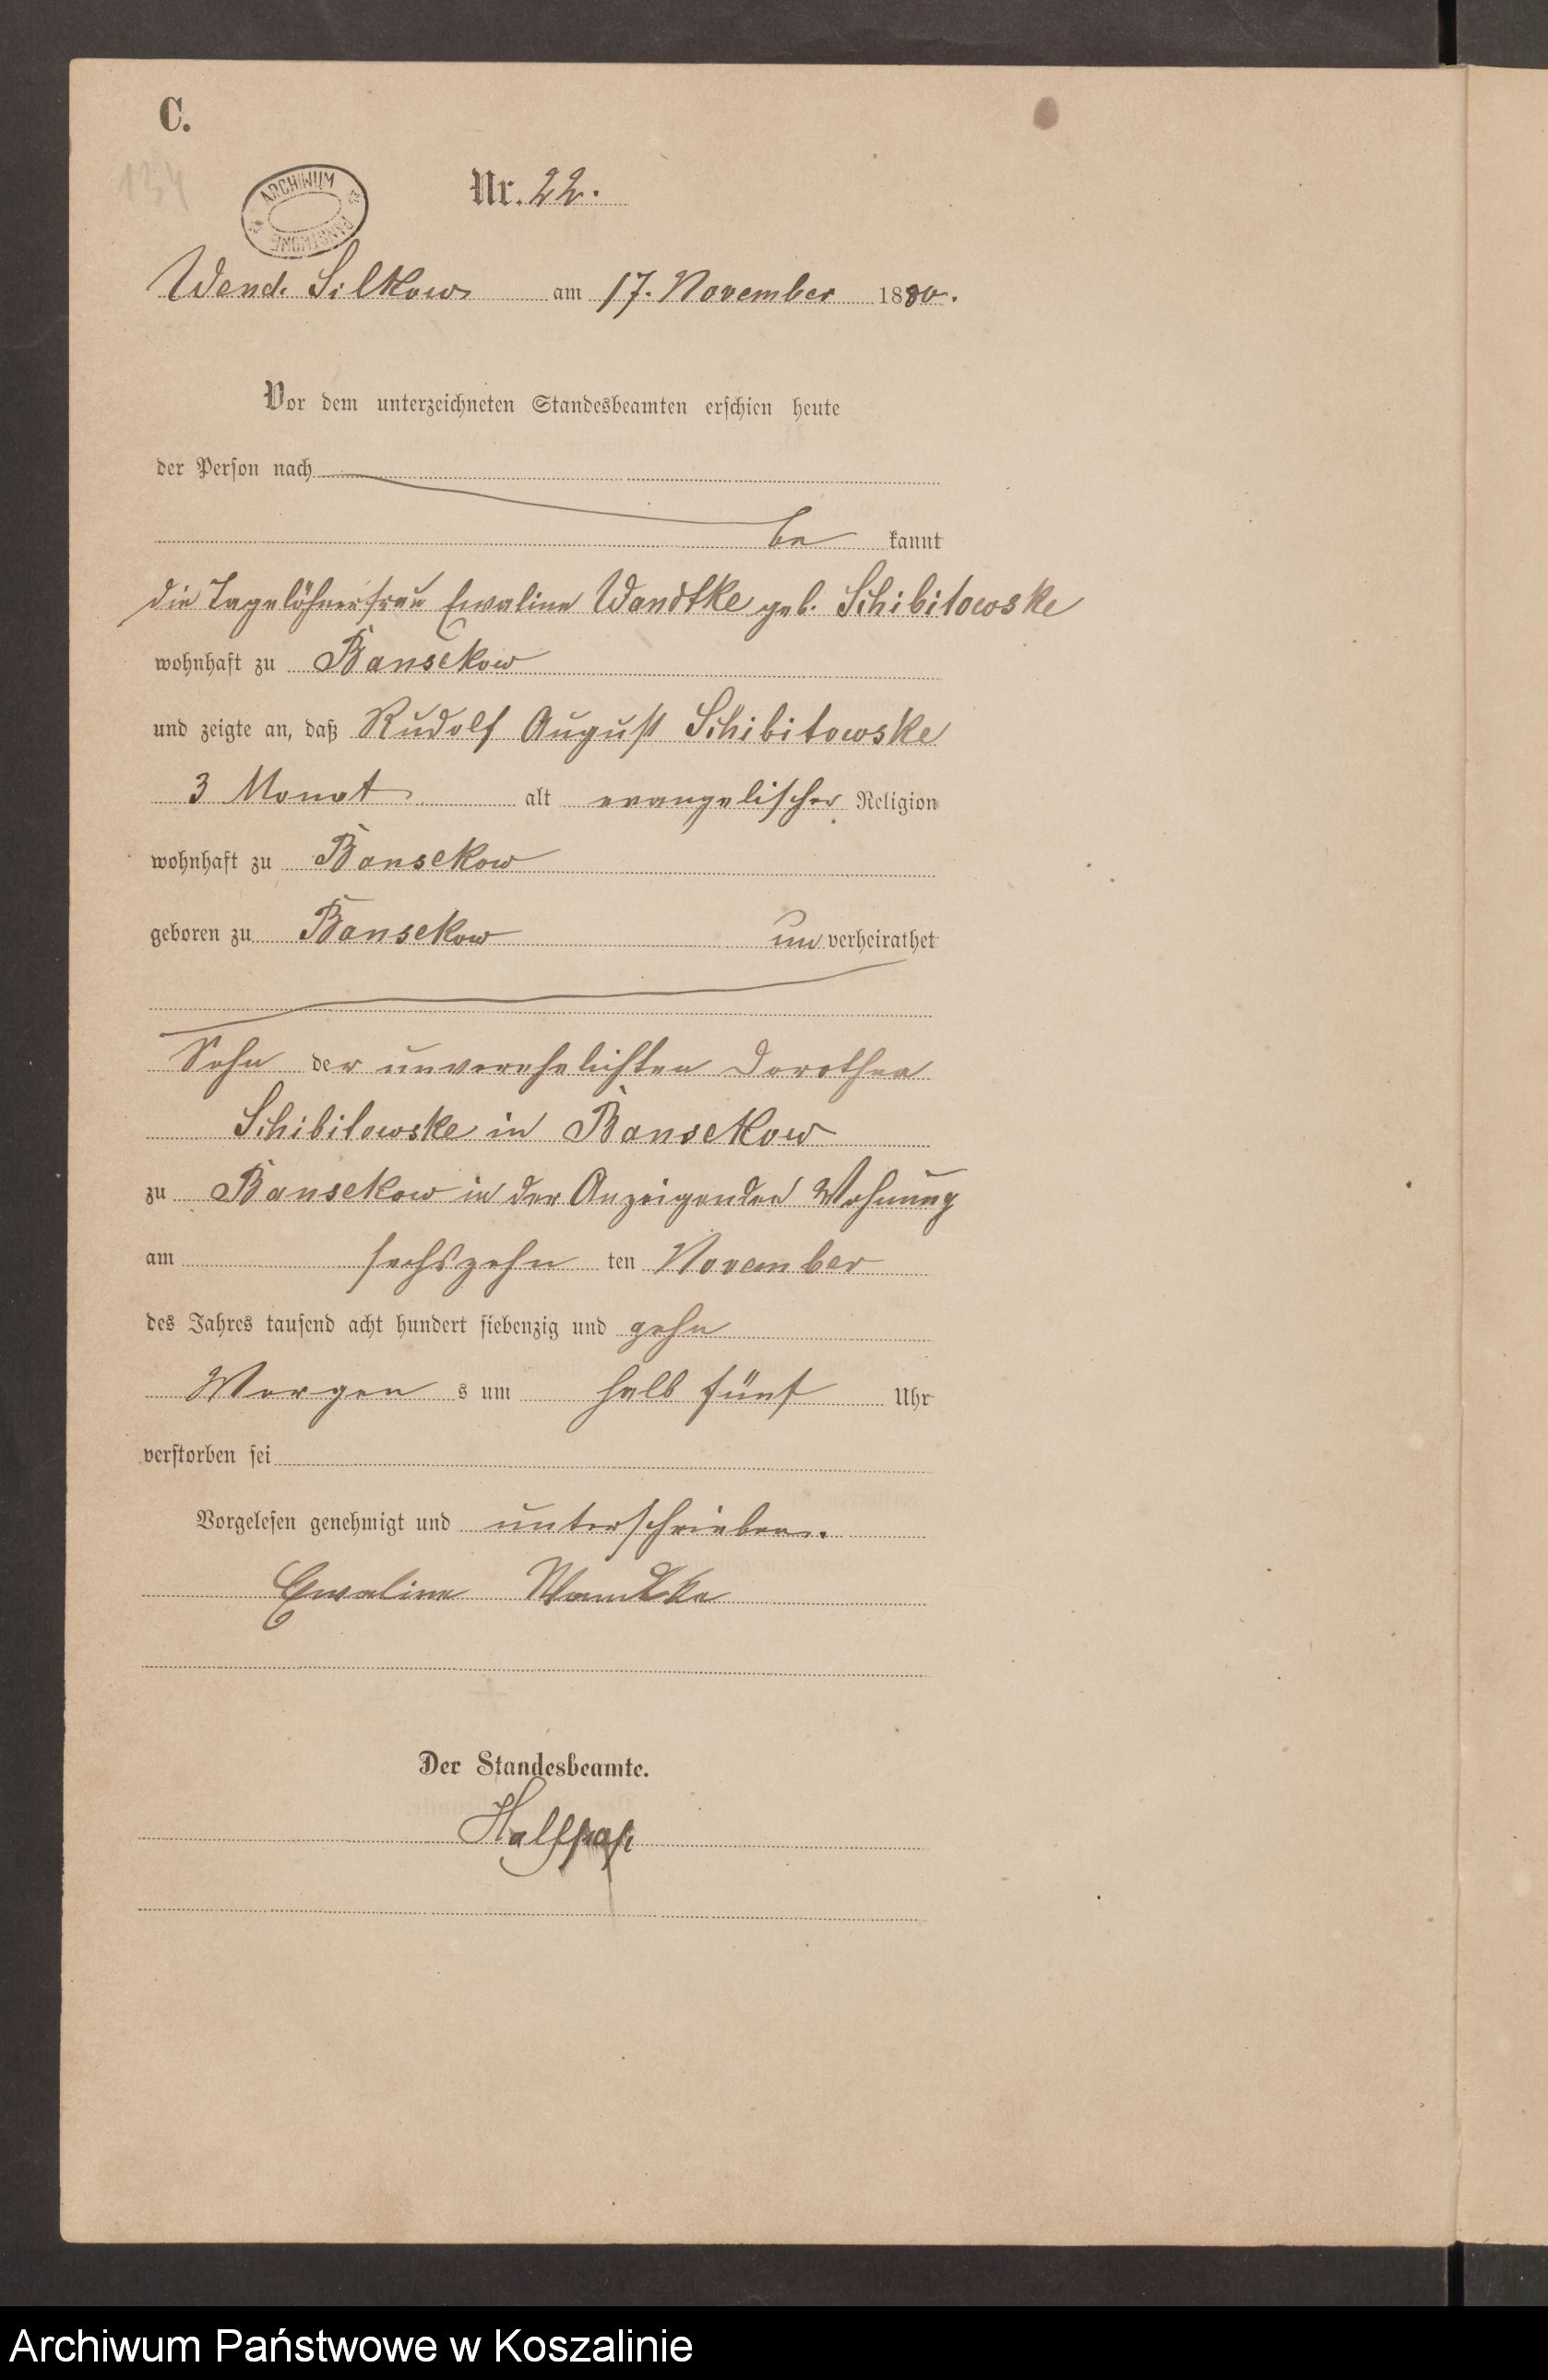 C.
134
ARCHIWUM PAŃSTWOWE
Nr. 22.
Wend. Silkow am 17. November 1880.
Vor dem unterzeichneten Standesbeamten erschien heute
der Person nach
be kannt
die Tagelöhnerfrau Ewaline Wandtke geb. Schibilowske
wohnhaft zu Bansekow
und zeigte an, daß Rudolf August Schibilowske
3 Monat alt evangelischer Religion
wohnhaft zu Bansekow
geboren zu Bansekow un verheirathet
Sohn der unverehelichten Dorothea
Schibilowske in Bansekow
zu Bansekow in der Anzeigenden Wohnung
am sechszehn ten November
des Jahres tausend acht hundert siebenzig und zehn
Morgen s um halb fünf Uhr
verstorben sei
Vorgelesen genehmigt und unterschrieben.
Ewaline Wandtke
Der Standesbeamte.
Halfpap
Archiwum Państwowe w Koszalinie